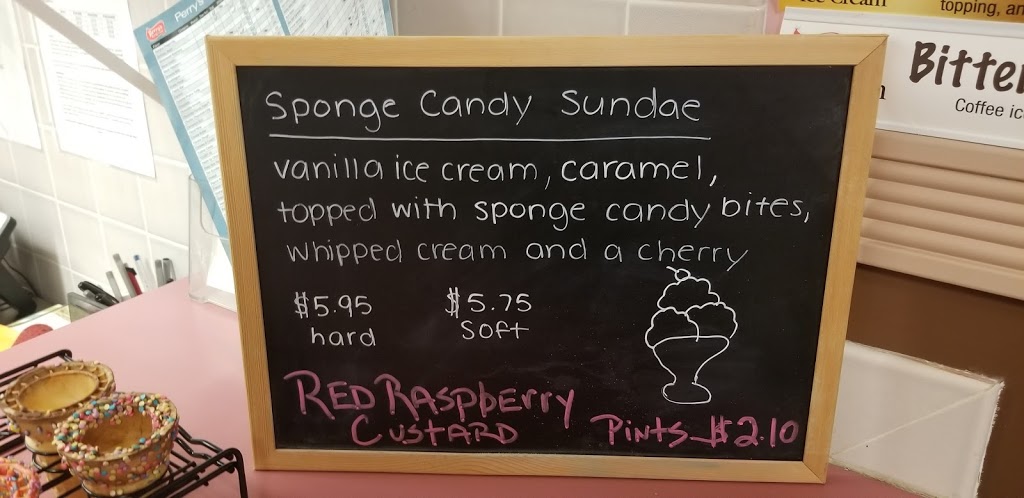 Perry's
ce Cream
topping, an
Bitte
Coffee ic
Sponge Candy Sundae
vanilla ice cream, caramel,
topped with sponge candy bites,
whipped cream and a cherry
$5.95 $5.75
hard soft
RED RASPBERRY
CUSTARD Pints $2.10